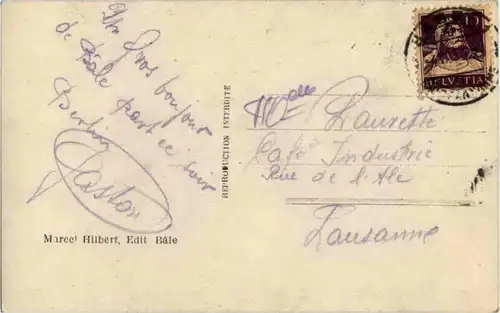 Un Gros bonjour
de Bâle Part ce soir
Berlin
Gaston
Marcel Hilbert, Edit Bâle
REPRODUCTION INTERDITE
10
HELVETIA
Mlle Laurette
Café Industrie
Rue de l'Ale
Lausanne